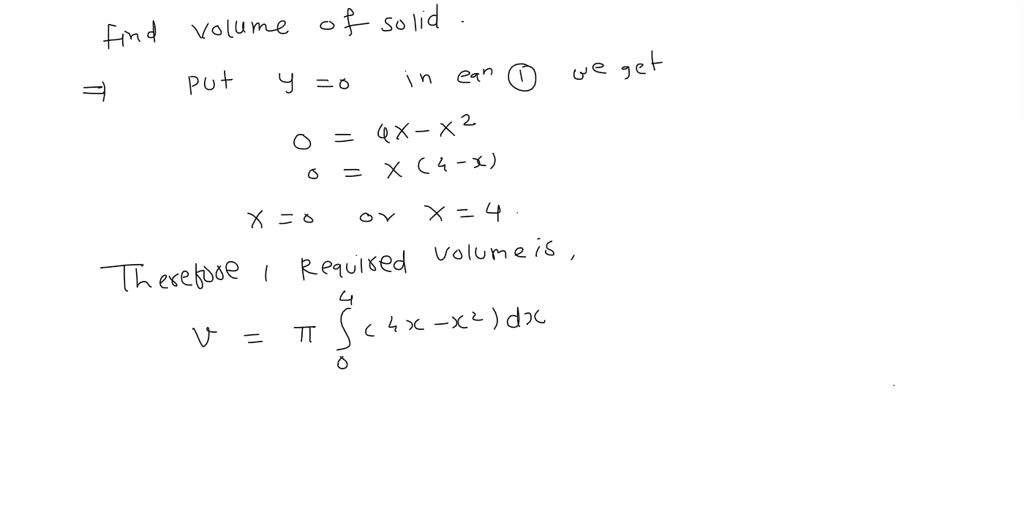 Find volume of solid.
⇒ Put y = 0 in eqn ① we get
0 = 4x - x²
0 = x (4 - x)
x = 0 or x = 4.
Therefore, Required volume is,
V = π ∫₀⁴ (4x - x²) dx